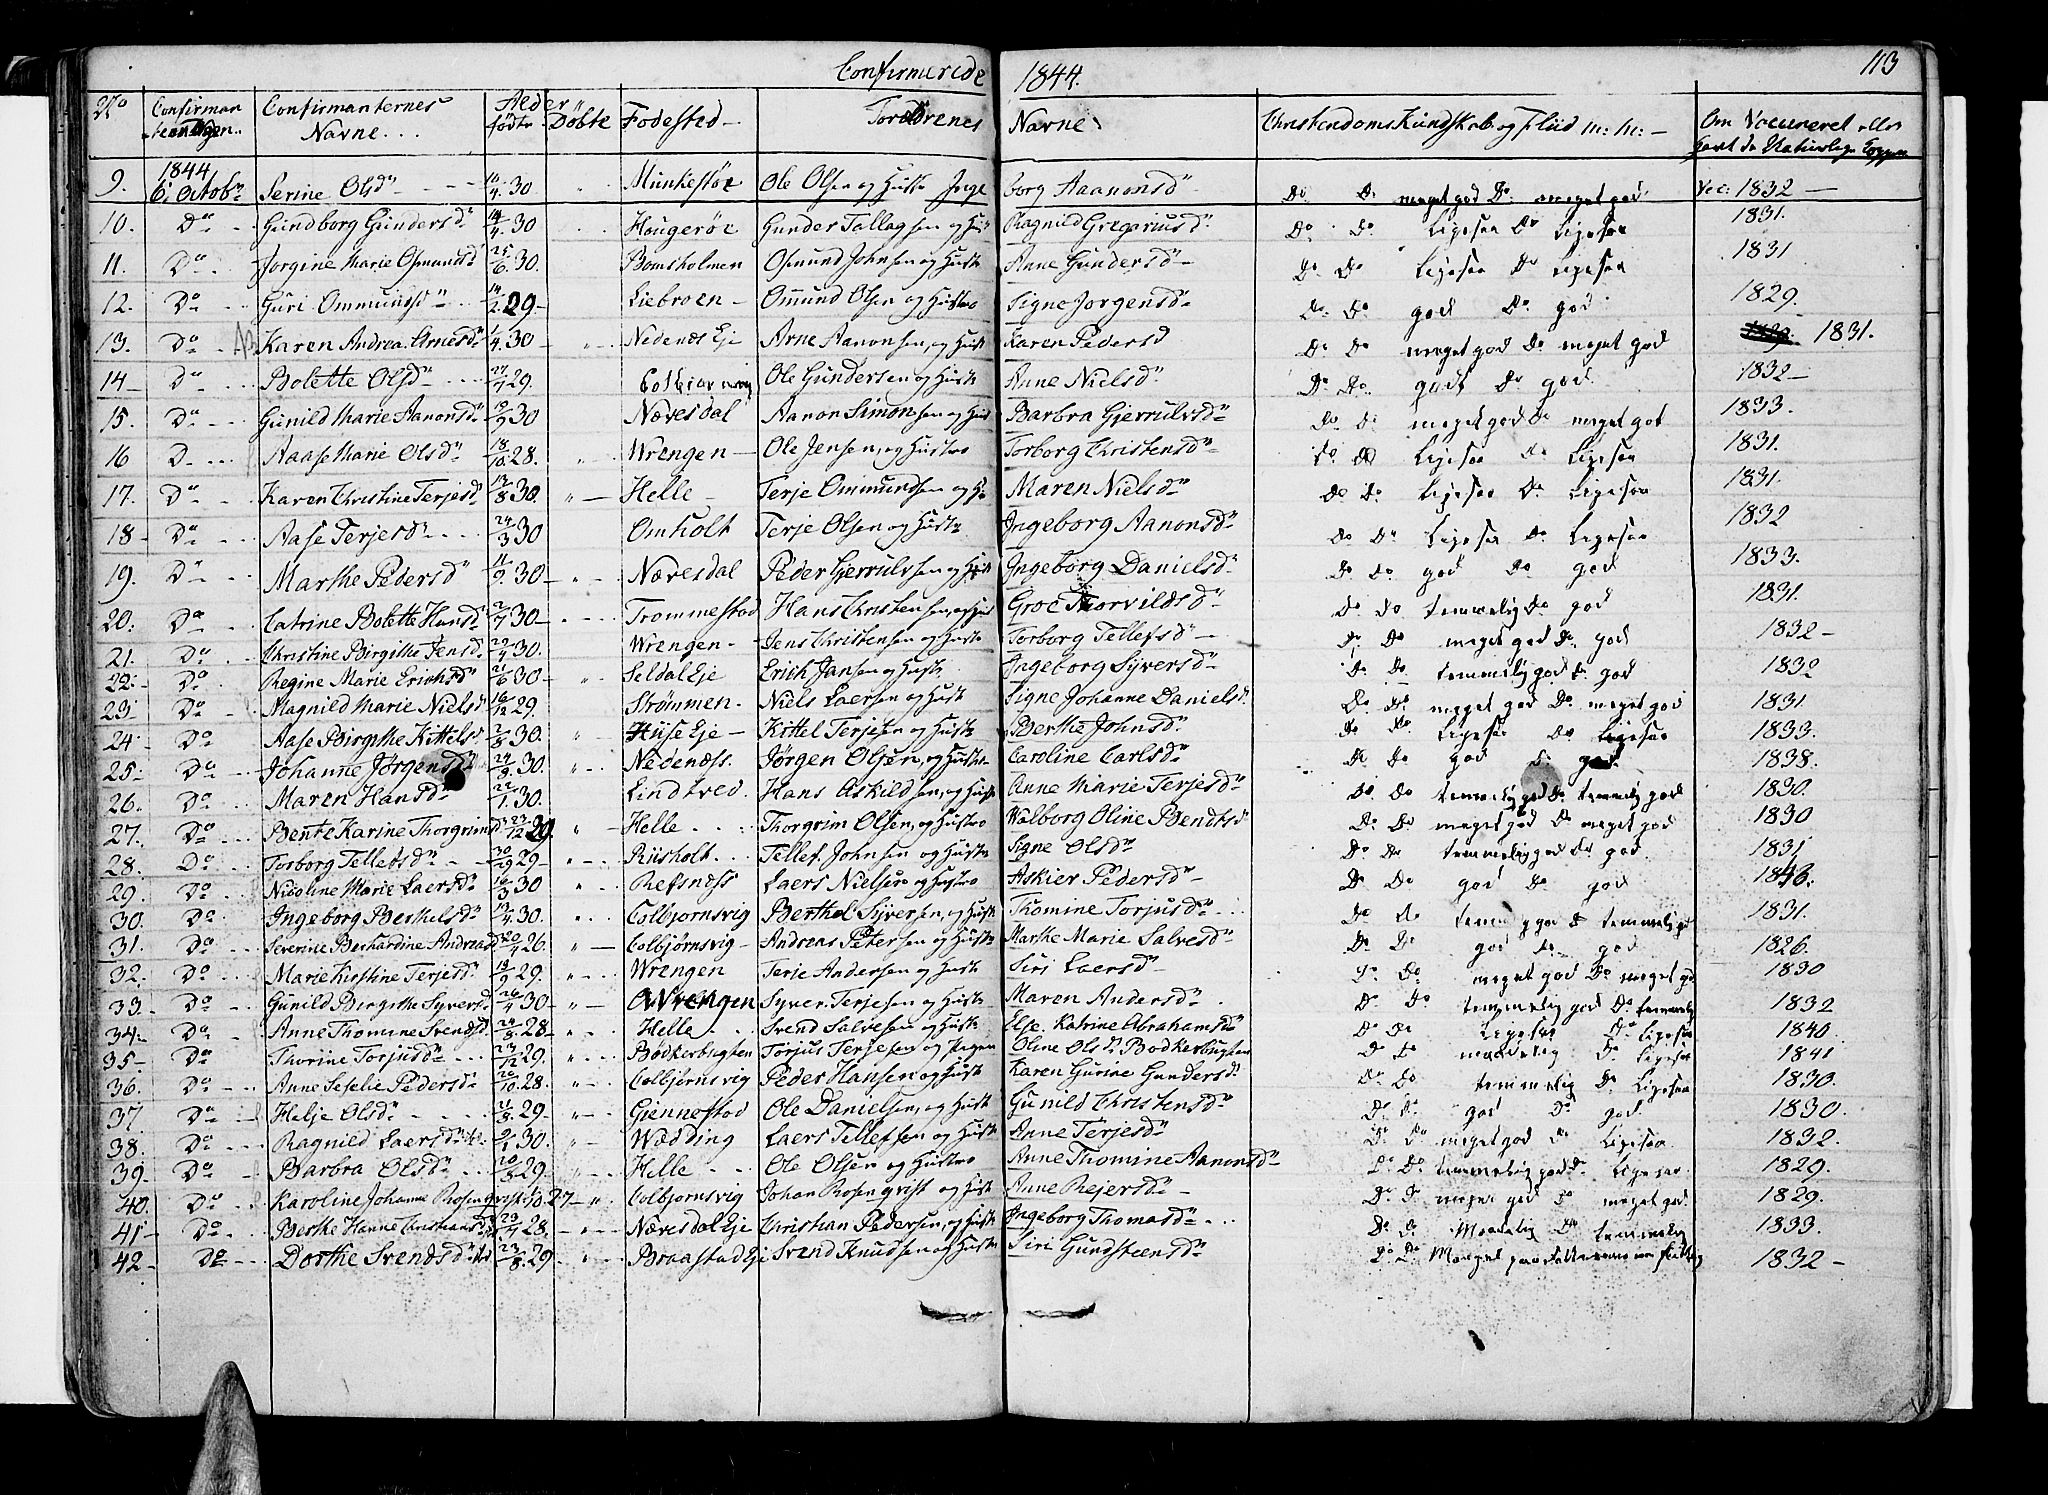 Confirmerede 1844. 113
No Confirmanternes Navne... Alder født Døbte Fødested Forældrenes Navne Christendoms Kundskab og Fliid m: m: Om Vaccineret eller
9. 1844 6: Octobr Serine Olsdn 16/4 30 Munkestøe Ole Olsen og Hustr Ingeborg Aanonsdn Do Do meget god Do meget god Vec: 1832
10. Do Gundborg Gundersdn 14/4 30 Hougerøe Gunder Tallagsen og Hustr Ragnild Gregoriusd Do Do Ligesaa Do Ligesaa 1831.
11. Do Jorgine Marie Osmundsdn 25/6 30. Bomsholmen Osmund Johnsen og Hustr Anne Gundersdn Do Do Ligesaa Do Ligesaa 1831
12. Do Guri Ommundsdn 14/2 29 Liebroen Omund Olsen og Hustro Signe Jorgensdn Do Do god Do god 1829.
13. Do Karen Andrea Arnesdn 1/4 30 Nedenæs Eje Arne Aanonsen, og Hustr Karen Pedersd Do Do meget god Do meget god 1831.
14 Do Bolette Olsdn 29. Ole Gundersen og Hustr Anne Nielsdn Do Do godt Do god 1832
15. Do Gunild Marie Aanonsdn 30 Nævesdal Aanon Simonsen og Hustr Barbra Gjerrulvsdn Do Do meget god Do meget got 1833.
16 D Naase Marie Olsdn 18/10 28. Wrengen Ole Jensen, og Hustro Torborg Christensdn Do Do Ligesaa Do Ligesaa 1831.
17. Do Karen Christine Terjesd 30. Helle Terje Ommundsen og Hu Maren Nielsdn Do Do Ligesaa Do Ligesaa 1831.
18 Do Aase Terjesdn 24/3 30 Omholt Terje Olsen og Hustr Ingeborg Aanonsdn Do Do Ligesaa Do Ligesaa 1832
19. Do Marthe Pedersdn 11/9 30 Nævesdal Peder Gjerrulvsen og Hustr Ingeborg Danielsdn Do Do god Do god 1833.
20. Do Catrine Bolette Hansd 2/7 30 Trommestad Hans Christensen, og Hust Groe Thorvildsdn Do Do temmelig Do god 1831.
21. Do Christine Birgithe Jensd 29/4 30. Wrengen Jens Christensen og Hustr Torborg Tellefsdn Do Do meget god Do god 1832
22. Do Regine Marie Erichsdn 21/6 30 Seldal Eje Erich Jansen og Hustr Ingeborg Syversdn Do Do temmelig god Do god 1832
23 Do Magnild Marie Nielsd 16/12 29. Strømmen Niels Laersen og Hustr Signe Johanne Danielsd Do Do meget god Do meget god 1831
24 Do Aase Birgithe Kittelsd 2/8 30. Hüse Eje Kittel Terjesen og Hustr Berthe Johnsdn Do Do Ligesaa Do Ligesaa 1833.
25. Do Johanne Jørgensdn 24/9 30. Nedenæss. Jørgen Olsen, og Hustr Caroline Carlsdn Do Do god Do god 1838.
26. Do Maren Hansdn 22/1 30. Lindtved Hans Askildsen, og Hustr Anne Marie Terjesdn Do Do temmelig god Do temmelig god 1830.
27. Do Bente Karine Thorgrimsd 23/12 29 Helle Thorgrim Olsen, og Hustro Walborg Oline Bendtsd Do Do meget god Do meget god 1830
28. Do Torborg Tellefsdn 30/9 29 Riisholt Tellef. Johnsen og Hustr Signe Olsdn Do Do temmelig god Do god 1831
29. Do Nicoline Marie Laersdn 16/3 30 Refsnæss Laers Nielsen og Hustro Askier Pedersdn Do Do god Do god
30. Do Ingeborg Berthelsdn 13/4 30. Colbjornsvig Berthel Syversen, og Hustr Thomine Torjusdn Do Do temmelig god Do temmelig god 1831.
31. Do Severine Berhardine Andreasd 20/4 26. Colbjørnsvig Andreas Petersen og Hustr Marthe Marie Salvesdn Do Do god Do god 1826.
32. Do Marie Kirstine Terjesdn 18/9 29. Wrengen Terje Andersen og Hustr Siri Laersdn Do Do meget god Do meget god 1830
33. Do Gunild Birgithe Syversd 26/4 30 Wrengen Syver. Terjesen og Hustr Maren Andersdn Do Do temmelig god Do temmelig 1832
34. Do Anne Thomine Svendsd. 24/8 28 Helle Svend Salvesen og Hustr Else. Katrine Abrahamsdn Do Do Ligesaa Do Ligesaa 1840.
35 Do Thorine Torjusdn 23/12 29. Bødkerbugten Torjus Terjesen og Pigen Oline Olsdn Bødkerbugten Do Do maadelig Do Ligesaa 1841
36. Do Anne Seselie Pedersd 20/10 28. Colbjørnsvig Peder Hansen og Hustr Karen Gurine Gundersd Do Do temmelig Do Ligesaa 1830.
37. Do Helje Olsdn 21/8 29. Gjennestad Ole Danielsen, og Hustr Gunild Christensdn Do Do god Do god 1830.
38. Do Ragnild Laersdn 30. Wædding Laers Tellefsen og Hustr Anne Terjesdn Do Do meget god Do Ligesaa 1832.
39. Do Barbra Olsdn 29. Helle Ole Olsen og Hustro Anne Thomine Aanonsdn Do Do temmelig god Do Ligesaa 1829.
40. Do Karoline Johanne Rosenqvist 27 Colbjornsvig Johan Rosenqvist og Hustr Anne Rejersdn Do Do meget god Do meget god 1829.
41 Do Berthe Hanne Christiansd 23/4 28. Nævesdal Eje Christian Pedersen, og Hustr Ingeborg Thomasdn Do Do Maadelig Do temmelig 1833.
42 Do Dorthe Svendsdn 23/8 29 Braastad Eje Svend Knudsen og Hustr Siri Gundsteensdn Do Do 1832